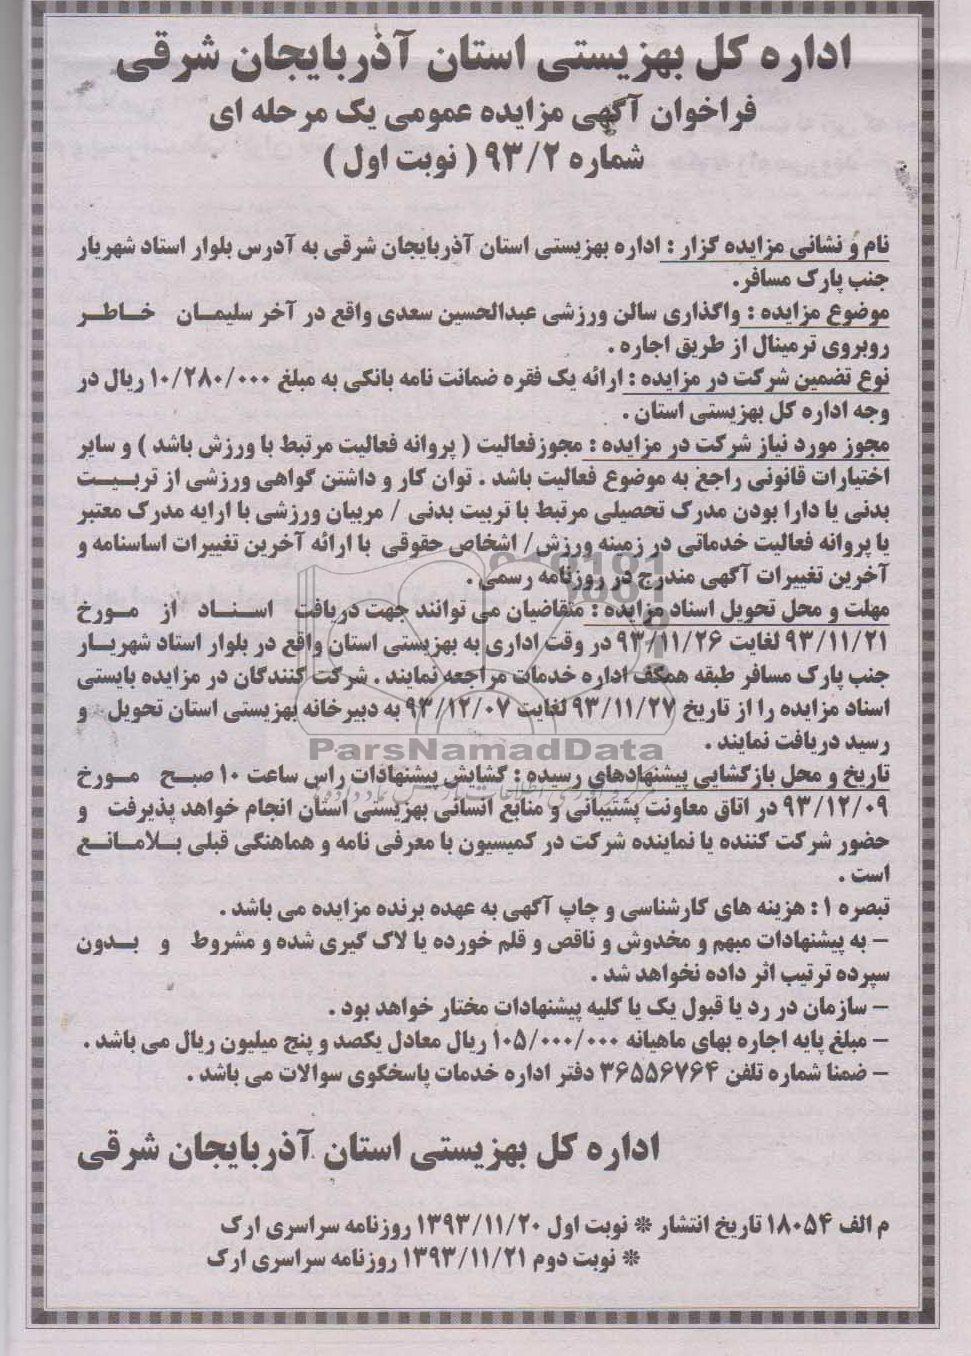 اداره کل بهزیستی استان آذربایجان شرقی
فراخوان آگهی مزایده عمومی یک مرحله ای
شماره ۹۳/۲ ( نوبت اول )
نام و نشانی مزایده گزار : اداره بهزیستی استان آذربایجان شرقی به آدرس بلوار استاد شهریار
جنب پارک مسافر.
موضوع مزایده : واگذاری سالن ورزشی عبدالحسین سعدی واقع در آخر سلیمان خاطر
روبروی ترمینال از طریق اجاره .
نوع تضمین شرکت در مزایده : ارائه یک فقره ضمانت نامه بانکی به مبلغ ۱۰/۲۸۰/۰۰۰ ریال در
وجه اداره کل بهزیستی استان .
مجوز مورد نیاز شرکت در مزایده : مجوزفعالیت ( پروانه فعالیت مرتبط با ورزش باشد ) و سایر
اختیارات قانونی راجع به موضوع فعالیت باشد . توان کار و داشتن گواهی ورزشی از تربیت
بدنی یا دارا بودن مدرک تحصیلی مرتبط با تربیت بدنی / مربیان ورزشی با ارایه مدرک معتبر
یا پروانه فعالیت خدماتی در زمینه ورزش/ اشخاص حقوقی با ارائه آخرین تغییرات اساسنامه و
آخرین تغییرات آگهی مندرج در روزنامه رسمی .
مهلت و محل تحویل اسناد مزایده : متقاضیان می توانند جهت دریافت اسناد از مورخ
۹۳/۱۱/۲۱ لغایت ۹۳/۱۱/۲۶ در وقت اداری به بهزیستی استان واقع در بلوار استاد شهریار
جنب پارک مسافر طبقه همکف اداره خدمات مراجعه نمایند . شرکت کنندگان در مزایده بایستی
اسناد مزایده را از تاریخ ۹۳/۱۱/۲۷ لغایت ۹۳/۱۲/۰۷ به دبیرخانه بهزیستی استان تحویل و
رسید دریافت نمایند .
ParsNamadData
تاریخ و محل بازگشایی پیشنهادهای رسیده : گشایش پیشنهادات راس ساعت ۱۰ صبح مورخ
۹۳/۱۲/۰۹ در اتاق معاونت پشتیبانی و منابع انسانی بهزیستی استان انجام خواهد پذیرفت و
حضور شرکت کننده یا نماینده شرکت در کمیسیون با معرفی نامه و هماهنگی قبلی بلامانع
است .
تبصره ۱ : هزینه های کارشناسی و چاپ آگهی به عهده برنده مزایده می باشد .
– به پیشنهادات مبهم و مخدوش و ناقص و قلم خورده یا لاک گیری شده و مشروط و بدون
سپرده ترتیب اثر داده نخواهد شد .
– سازمان در رد یا قبول یک یا کلیه پیشنهادات مختار خواهد بود .
– مبلغ پایه اجاره بهای ماهیانه ۱۰۵/۰۰۰/۰۰۰ ریال معادل یکصد و پنج میلیون ریال می باشد .
– ضمنا شماره تلفن ۳۶۵۵۶۷۶۴ دفتر اداره خدمات پاسخگوی سوالات می باشد .
اداره کل بهزیستی استان آذربایجان شرقی
م الف ۱۸۰۵۴ تاریخ انتشار * نوبت اول ۱۳۹۳/۱۱/۲۰ روزنامه سراسری ارک
* نوبت دوم ۱۳۹۳/۱۱/۲۱ روزنامه سراسری ارک